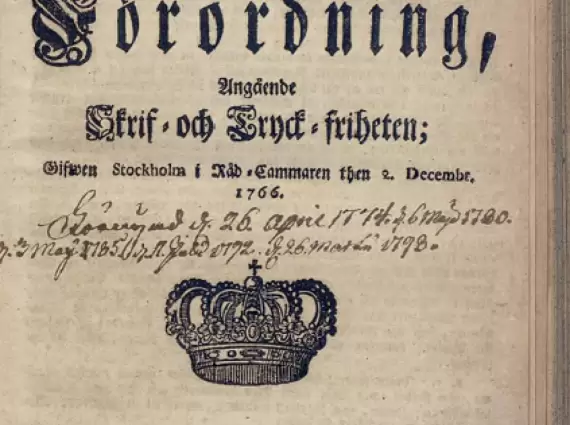 Förordning,
Angående
Skrif-och Tryck-friheten;
Gifwen Stockholm i Råd-Cammaren then 2. Decembr.
1766.
d. 26. april 1774. d. 6 Maji 1780.
d. 3 Maij 1785. 1792. d. 26. Martii 1798.